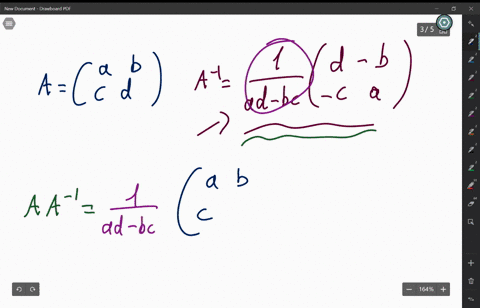 New Document - Drawboard PDF
3 / 5
A = ( a b
c d )
A⁻¹ = 1/(ad-bc) ( d - b
-c a )
A A⁻¹ = 1/(ad-bc) ( a b
c
164%